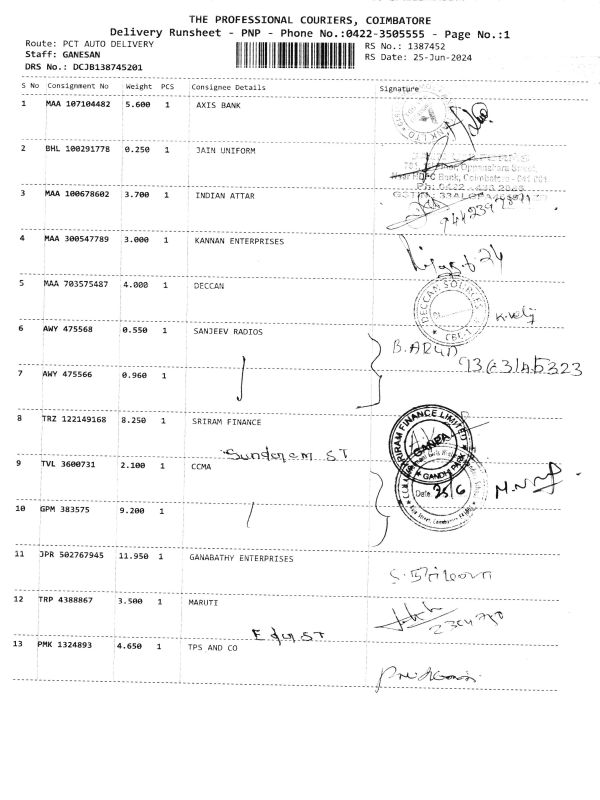 THE PROFESSIONAL COURIERS, COIMBATORE
Delivery Runsheet - PNP - Phone No.:0422-3505555 - Page No.:1
Route: PCT AUTO DELIVERY
RS No.: 1387452
Staff: GANESAN
RS Date: 25-Jun-2024
DRS No.: DCJB138745201
S No Consignment No Weight PCS Consignee Details Signature
1 MAA 107104482 5.600 1 AXIS BANK
2 BHL 100291778 0.250 1 JAIN UNIFORM
3 MAA 100678602 3.700 1 INDIAN ATTAR
4 MAA 300547789 3.000 1 KANNAN ENTERPRISES
5 MAA 703575487 4.000 1 DECCAN
DECCAN
CBE-1
6 AWY 475568 0.550 1 SANJEEV RADIOS
B. ARUN
7 AWY 475566 0.960 1
8 TRZ 122149168 8.250 1 SRIRAM FINANCE
SRIRAM FINANCE LIMITED
9 TVL 3600731 2.100 1 CCMA
Date 25/6
10 GPM 383575 9.200 1
11 JPR 502767945 11.950 1 GANABATHY ENTERPRISES
12 TRP 4388867 3.500 1 MARUTI
13 PMK 1324893 4.650 1 TPS AND CO